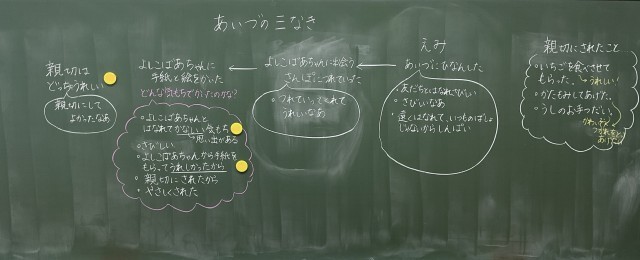 あいづの三なき
親切にされたこと
・いちごを食べさせて
もらった。→うれしい!
・かたもみしてあげた。
・うしのお手つだい。
えみ
あいづにひなんした
・友だちとはなれさびしい
・さびしいなあ
・遠くはなれて、いつものばしょ
じゃないからしんぱい
よしこばあちゃんに出会う
さんぽにつれていった
・つれていってくれて
うれしいなあ
よしこばあちゃんに
手紙と絵をかいた
どんな気もちでかいたのかな?
・よしこばあちゃんと
はなれてかなしい気もち
→思い出がある
・さびしい
・よしこばあちゃんから手紙を
もらってうれしかったから
・親切にされたから
・やさしくされた
親切は
どっちもうれしい
親切にして
よかったなあ